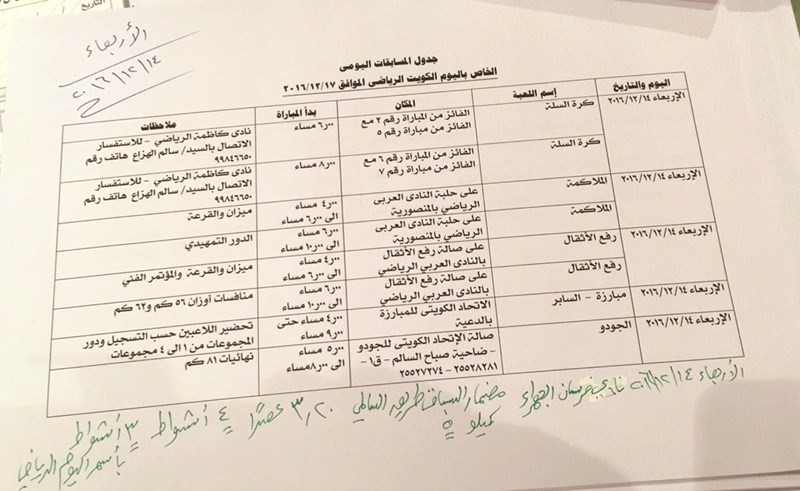 التاريخ
الأربعاء
٢٠١٦/١٢/١٤
جدول المسابقات اليومى
الخاص باليوم الكويت الرياضى الموافق ٢٠١٦/١٢/١٧
اليوم والتاريخ إسم اللعبة المكان بدأ المباراة ملاحظات
الإربعاء ٢٠١٦/١٢/١٤ كرة السلة الفائز من المباراة رقم ٢ مع ٦٫٠٠ مساء نادى كاظمة الرياضي – للاستفسار
الفائز من مباراة رقم ٥ الاتصال بالسيد/ سالم الهزاع هاتف رقم
٩٩٨٤٦٦٥٠
كرة السلة الفائز من المباراة رقم ٦ مع ٨٫٠٠ مساء نادى كاظمة الرياضي – للاستفسار
الفائز من مباراة رقم ٧ الاتصال بالسيد/ سالم الهزاع هاتف رقم
٩٩٨٤٦٦٥٠
الإربعاء ٢٠١٦/١٢/١٤ الملاكمة على حلبة النادى العربى ٤٫٠٠ مساء ميزان والقرعة
الرياضي بالمنصورية الى ٦٫٠٠ مساء
الملاكمة على حلبة النادى العربى ٦٫٠٠ مساء الدور التمهيدي
الرياضي بالمنصورية الى ١٠٫٠٠ مساء
الإربعاء ٢٠١٦/١٢/١٤ رفع الأثقال على صالة رفع الأثقال ٤٫٠٠ مساء ميزان والقرعة والمؤتمر الفني
بالنادى العربي الرياضي الى ٦٫٠٠ مساء
رفع الأثقال على صالة رفع الأثقال ٦٫٠٠ مساء منافسات أوزان ٥٦ كم و٦٢ كم
بالنادى العربي الرياضي الى ١٠٫٠٠ مساء
الإربعاء ٢٠١٦/١٢/١٤ مبارزة – السابر الاتحاد الكويتى للمبارزة ٤٫٠٠ مساء حتى تحضير اللاعبين حسب التسجيل ودور
بالدعية ٩٫٠٠ مساء المجموعات من ١ الى ٤ مجموعات
الإربعاء ٢٠١٦/١٢/١٤ الجودو صالة الإتحاد الكويتى للجودو ٥٫٠٠ مساء نهائيات ٨١ كم
– ضاحية صباح السالم – ق١ – الى ٨٫٠٠ مساء
٢٥٥٢٨٢٨١ – ٢٥٥٢٧٢٧٤
الأربعاء ٢٠١٦/١٢/١٤ الجهراء مضمار السباق طريق السالمي ٣٫٢٠ عصرًا ٤ أشواط ٣ أشواط
كميلو ٥ بأسم اليوم الرياضي